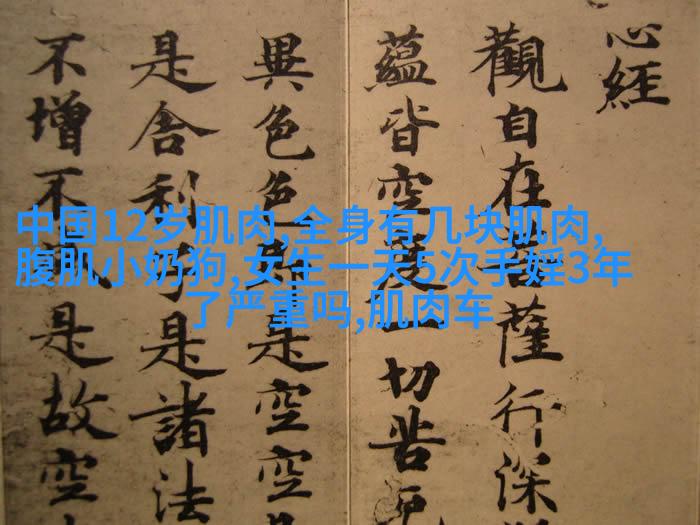 心經
觀自在菩薩行深
蘊皆空度一切苦
異色色是空空
是舍利子是諸法
不增不是故空
中国12岁肌肉,全身有几块肌肉,
腹肌小奶狗,女生一天5次手婬3年
了严重吗,肌肉车